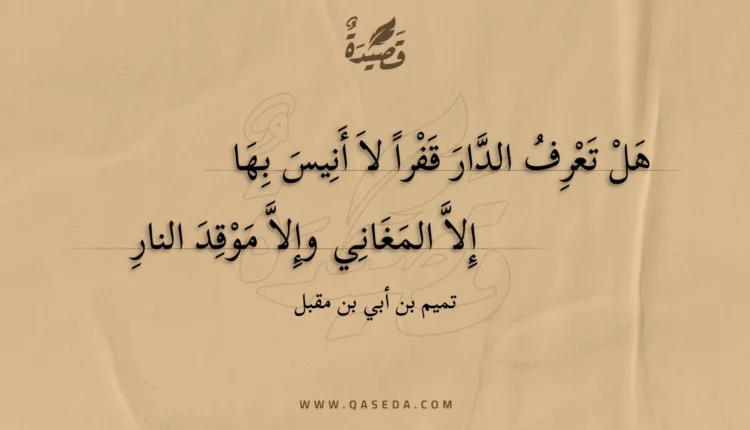 قَصِيدَةٌ
هَلْ تَعْرِفُ الدَّارَ قَفْراً لاَ أَنِيسَ بِهَا
إِلاَّ المَغَانِي وإِلاَّ مَوْقِدَ النارِ
تميم بن أبي بن مقبل
WWW.QASEDA.COM